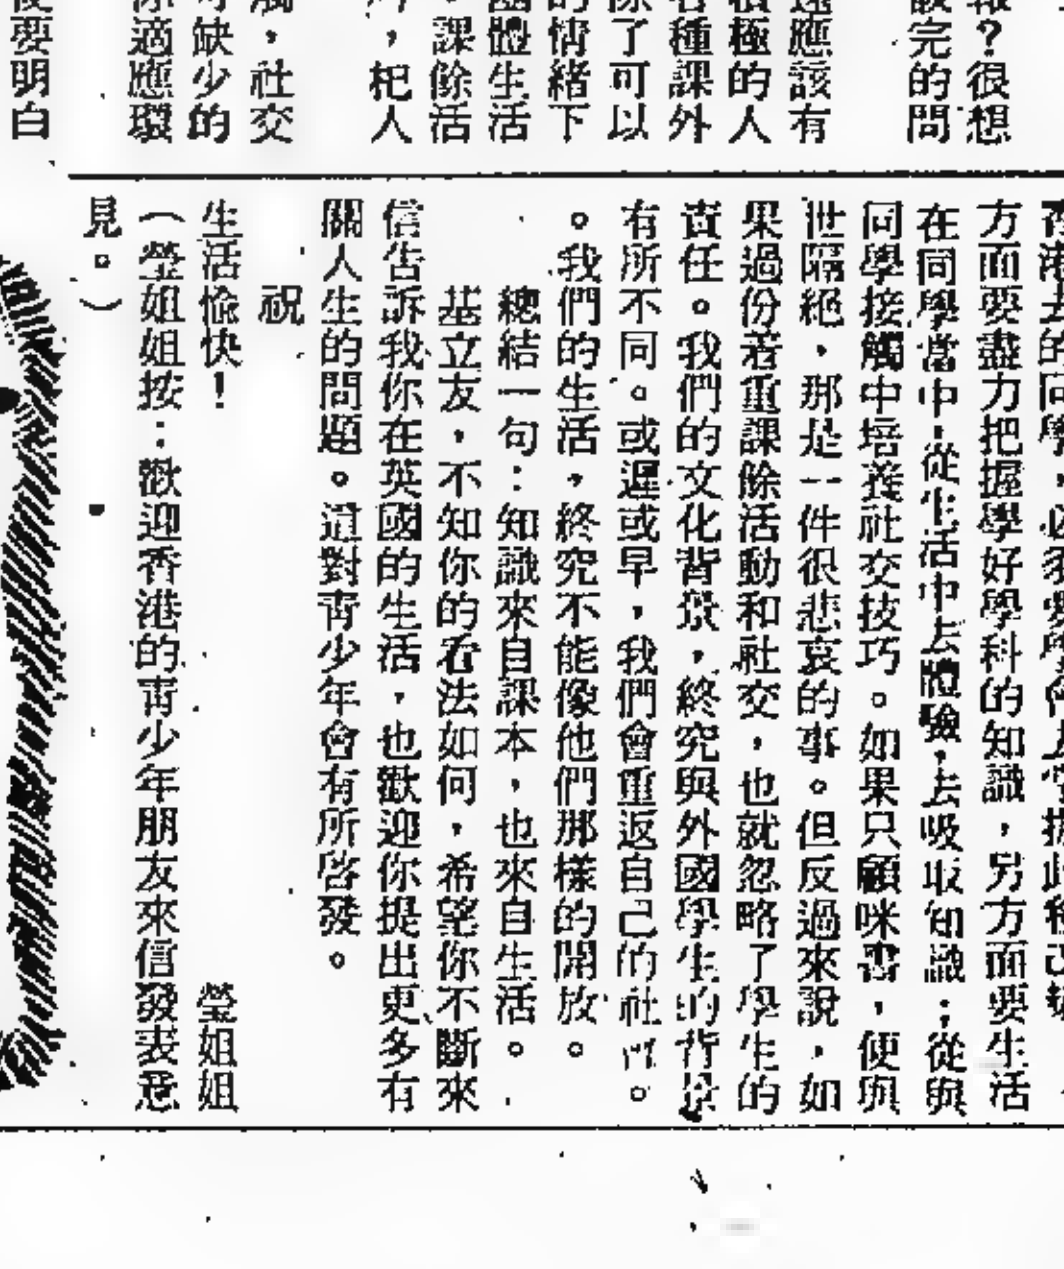 報？很想
完的問
應該有
極的人
種課外
了可以
情緒下
體生活
課餘活
，把人
，社交
缺少的
適應環
要明白
方面要盡力把握學好學科的知識，另方面要生活
在同學當中，從生活中去體驗，去吸取知識；從與
同學接觸中培養社交技巧。如果只顧咪書，便與
世隔絕，那是一件很悲哀的事。但反過來說，如
果過份着重課餘活動和社交，也就忽略了學生的
責任。我們的文化背景，終究與外國學生的背景
有所不同。或遲或早，我們會重返自己的社會。
。我們的生活，終究不能像他們那樣的開放。
總結一句：知識來自課本，也來自生活。
基立友，不知你的看法如何，希望你不斷來
信告訴我你在英國的生活，也歡迎你提出更多有
關人生的問題。這對青少年會有所啓發。
祝
生活愉快！
瑩姐姐
（瑩姐姐按：歡迎香港的青少年朋友來信發表意
見。）